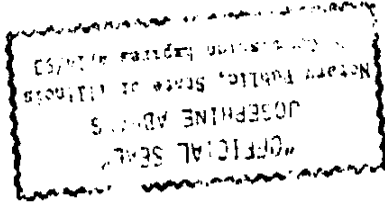 "OFFICIAL SEAL"
JOSEPHINE
Notary Public, State of Illinois
Expires 4/14/93